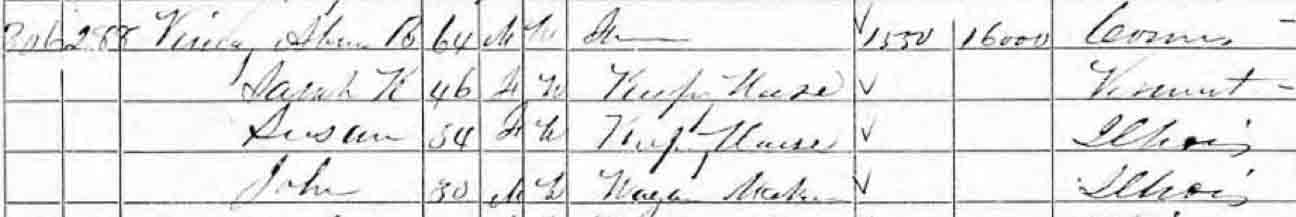 306 288 64 M W 1550 16000 Conn
Sarah K 46 F W Keeps House Vermont
Susan 34 F W Keeps House Illinois
John 30 M W Wagon Maker Illinois